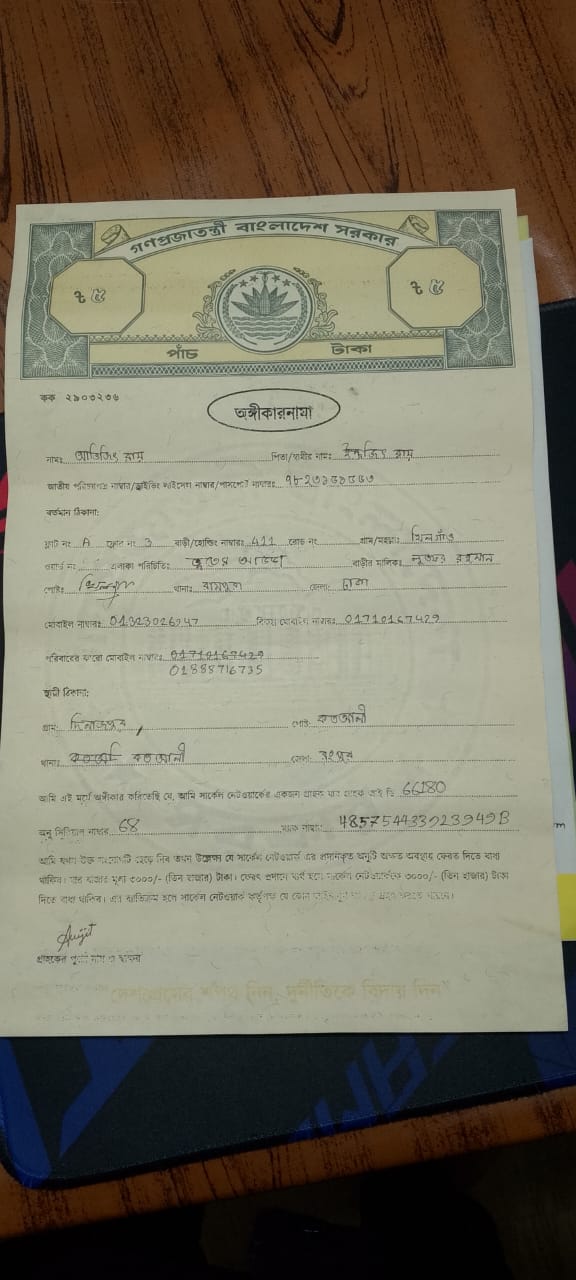 গণপ্রজাতন্ত্রী বাংলাদেশ সরকার
৳ ৫ ৳ ৫
পাঁচ টাকা
কক ২৯০৩২৩৬
অঙ্গীকারনামা
নামঃ অভিজিৎ রায় পিতা/স্বামীর নামঃ ইন্দ্রজিৎ রায়
জাতীয় পরিচয়পত্র নাম্বার/ড্রাইভিং লাইসেন্স নাম্বার/পাসপোর্ট নাম্বারঃ
বর্তমান ঠিকানা:
ফ্লাট নং A ফ্লোর নং 3 বাড়ী/হোল্ডিং নাম্বারঃ 411 রোড নং গ্রাম/মহল্লা: খিলগাঁও
ওয়ার্ড নং এলাকা পরিচিতি: বাড়ীর মালিক: লুতফর রহমান
পোষ্ট: থানাঃ রামপুরা জেলা: ঢাকা
মোবাইল নাম্বারঃ 01323026947 বিকল্প মোবাইল নাম্বারঃ 01710167429
পরিবারের কারো মোবাইল নাম্বারঃ 01710167429
01888716735
স্থায়ী ঠিকানা:
গ্রাম: দিনাজপুর, পোষ্ট: কতআলী
থানাঃ কতআলী জেলা: রংপুর
আমি এই মর্মে অঙ্গীকার করিতেছি যে, আমি সার্কেল নেটওয়ার্কের একজন গ্রাহক যার গ্রাহক আই ডি 66180
অনু সিরিয়াল নাম্বার 68 ম্যাক নাম্বারঃ 485754433923949B
আমি যখন উক্ত সংযোগটি ছেড়ে দিব তখন উল্লেখ্য যে সার্কেল নেটওয়ার্ক এর প্রদানকৃত অনুটি অক্ষত অবস্থায় ফেরত দিতে বাধ্য
থাকিব। যার বাজার মূল্য ৩০০০/- (তিন হাজার) টাকা। ফেরৎ প্রদানে ব্যর্থ হলে সার্কেল নেটওয়ার্ককে ৩০০০/- (তিন হাজার) টাকা
দিতে বাধ্য থাকিব। এর ব্যতিক্রম হলে সার্কেল নেটওয়ার্ক কর্তৃপক্ষ যে কোন
Avijit
গ্রাহকের পুরো নাম ও স্বাক্ষর
"দেশপ্রেমের শপথ নিন, দুর্নীতিকে বিদায় দিন"